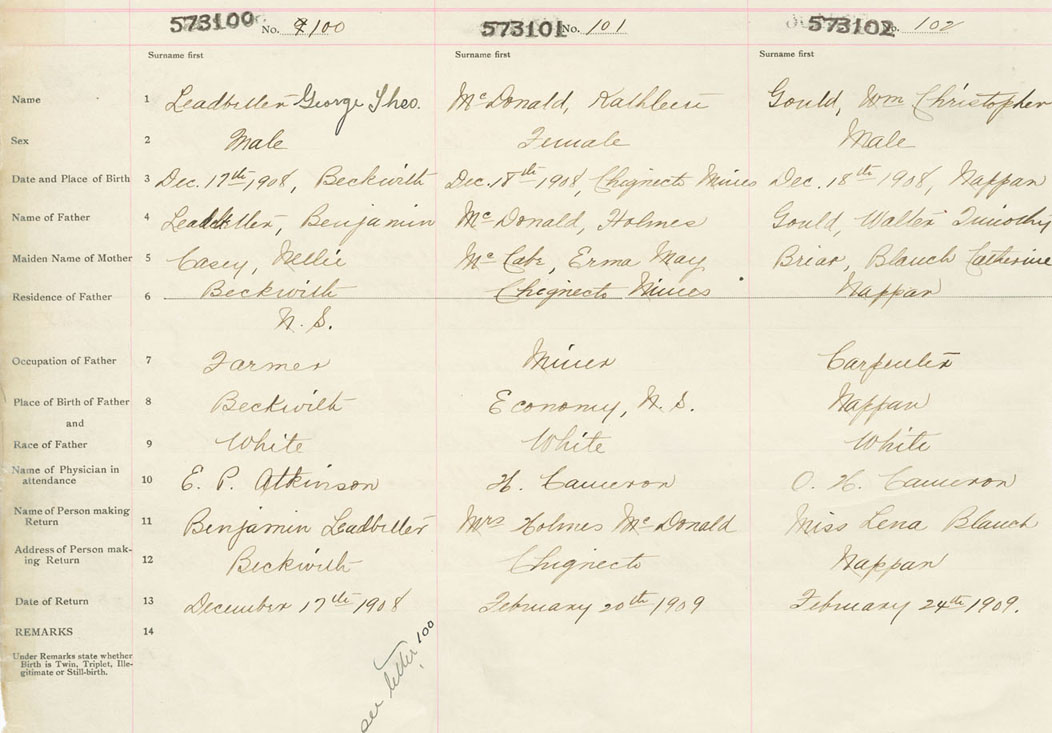 573100 No. 100 573101 No. 101 573102 No. 102
Surname first Surname first Surname first
Name 1 Leadbetter George Theo. McDonald, Kathleen Gould, Wm Christopher
Sex 2 Male Female Male
Date and Place of Birth 3 Dec. 17th 1908, Beckwith Dec. 18th 1908, Chignecto Mines Dec. 18th 1908, Nappan
Name of Father 4 Leadbetter, Benjamin McDonald, Holmes Gould, Walter Timothy
Maiden Name of Mother 5 Casey, Nellie McCabe, Erma May Briar, Blanch Catherine
Residence of Father 6 Beckwith Chignecto Mines Nappan
N. S.
Occupation of Father 7 Farmer Miner Carpenter
Place of Birth of Father 8 Beckwith Economy, N. S. Nappan
and
Race of Father 9 White White White
Name of Physician in
attendance 10 E. P. Atkinson H. Cameron O. H. Cameron
Name of Person making
Return 11 Benjamin Leadbetter Mrs Holmes McDonald Miss Lena Blanch
Address of Person mak-
ing Return 12 Beckwith Chignecto Nappan
Date of Return 13 December 17th 1908 February 20th 1909 February 24th 1909.
REMARKS 14
Under Remarks state whether
Birth is Twin, Triplet, Ille-
gitimate or Still-birth.
see letter 100